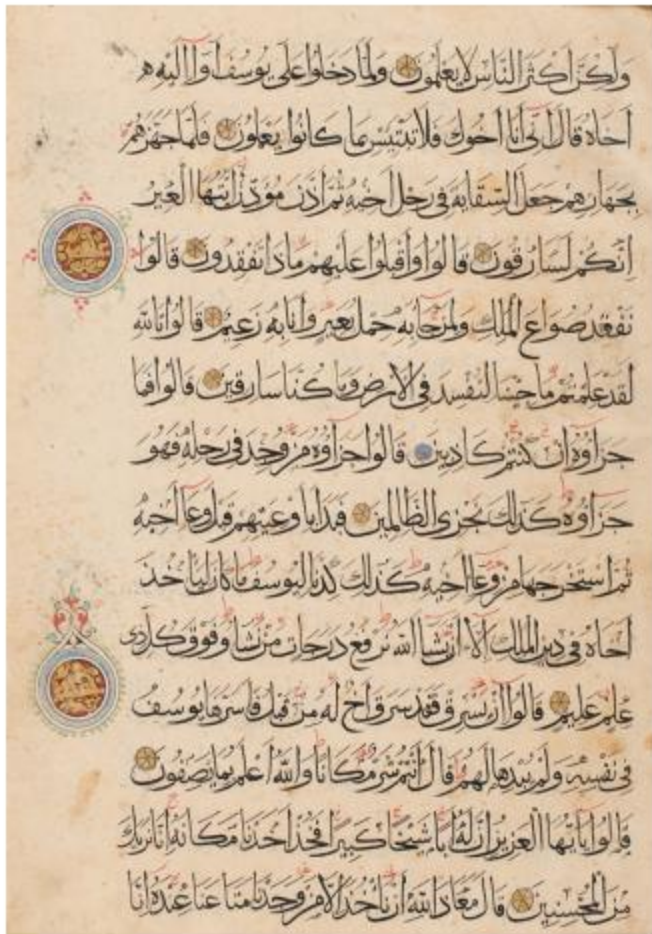 وَلَكِنَّ أَكْثَرَ النَّاسِ لَا يَعْلَمُونَ وَلَمَّا دَخَلُوا عَلَى يُوسُفَ آوَا إِلَيْهِ
أَخَاهُ قَالَ إِنِّي أَنَا أَخُوكَ فَلَا تَبْتَئِسْ بِمَا كَانُوا يَعْمَلُونَ فَلَمَّا جَهَّزَهُمْ
بِجَهَازِهِمْ جَعَلَ السِّقَايَةَ فِي رَحْلِ أَخِيهِ ثُمَّ أَذَّنَ مُؤَذِّنٌ أَيَّتُهَا الْعِيرُ
إِنَّكُمْ لَسَارِقُونَ قَالُوا وَأَقْبَلُوا عَلَيْهِمْ مَاذَا تَفْقِدُونَ قَالُوا
نَفْقِدُ صُوَاعَ الْمَلِكِ وَلِمَنْ جَا بِهِ حِمْلُ بَعِيرٍ وَأَنَا بِهِ زَعِيمٌ قَالُوا تَاللَّهِ
لَقَدْ عَلِمْتُمْ مَا جِئْنَا لِنُفْسِدَ فِي الْأَرْضِ وَمَا كُنَّا سَارِقِينَ قَالُوا فَمَا
جَزَاؤُهُ إِنْ كُنْتُمْ كَاذِبِينَ قَالُوا جَزَاؤُهُ مَنْ وُجِدَ فِي رَحْلِهِ فَهُوَ
جَزَاؤُهُ كَذَلِكَ نَجْزِي الظَّالِمِينَ فَبَدَأَ بِأَوْعِيَتِهِمْ قَبْلَ وِعَا أَخِيهِ
ثُمَّ اسْتَخْرَجَهَا مِنْ وِعَا أَخِيهِ كَذَلِكَ كِدْنَا لِيُوسُفَ مَا كَانَ لِيَأْخُذَ
أَخَاهُ فِي دِينِ الْمَلِكِ إِلَّا أَنْ يَشَا اللَّهُ نَرْفَعُ دَرَجَاتٍ مَنْ نَشَا وَفَوْقَ كُلِّ ذِي
عِلْمٍ عَلِيمٌ قَالُوا إِنْ يَسْرِقْ فَقَدْ سَرَقَ أَخٌ لَهُ مِنْ قَبْلُ فَأَسَرَّهَا يُوسُفُ
فِي نَفْسِهِ وَلَمْ يُبْدِهَا لَهُمْ قَالَ أَنْتُمْ شَرٌّ مَكَانًا وَاللَّهُ أَعْلَمُ بِمَا تَصِفُونَ
قَالُوا يَا أَيُّهَا الْعَزِيزُ إِنَّ لَهُ أَبًا شَيْخًا كَبِيرًا فَخُذْ أَحَدَنَا مَكَانَهُ إِنَّا نَرَاكَ
مِنَ الْمُحْسِنِينَ قَالَ مَعَاذَ اللَّهِ أَنْ نَأْخُذَ إِلَّا مَنْ وَجَدْنَا مَتَاعَنَا عِنْدَهُ إِنَّا